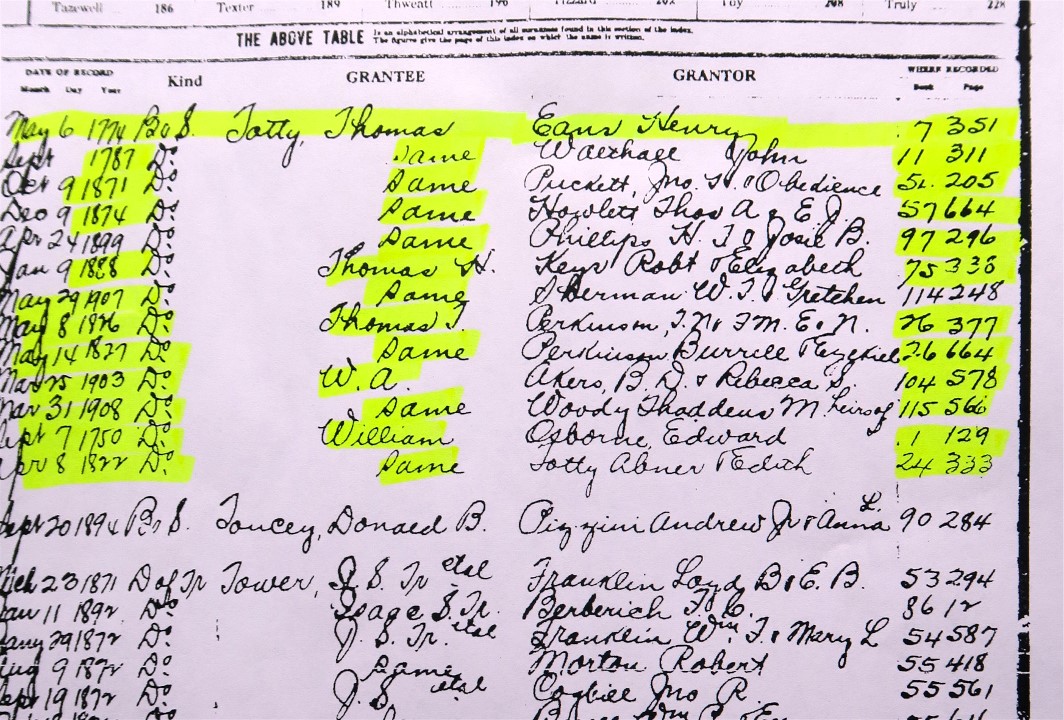 Tazewell 186 Texter 189 Thweatt 196 Tizzard 202 Toy 208 Truly 228
THE ABOVE TABLE Is an alphabetical arrangement of all surnames found in this section of the index.
The figures give the page of this index on which the name is written.
DATE OF RECORD Kind GRANTEE GRANTOR WHERE RECORDED
Month Day Year Book Page
May 6 1774 B&S. Totty, Thomas Eans Henry 7 351
Sept 1787 Do Same Walthall John 11 311
Oct 9 1871 Do Same Puckett, Jno. H. & Obedience 51 205
Dec 9 1874 Do Same Howlett Thos A & E. J. 57 664
Apr 24 1899 Do Same Phillips H. T & Josie B. 97 296
Jan 9 1888 Do Thomas H. Keys Robt & Elizabeth 75 338
May 29 1907 Do Same Sherman W. T. & Gretchen 114 248
May 8 1826 Do Thomas T. Perkinson, T. N. & M. E. N. 26 377
May 14 1827 Do Same Perkinson Burrell & Ezekiel 26 664
Mar 25 1903 Do W. A. Akers, B. D. & Rebecca S. 104 578
Mar 31 1908 Do Same Woody Thaddeus M. heirs of 115 566
Sept 7 1750 Do William Osborne, Edward 1 129
Apr 8 1822 Do Same Totty Abner & Edith 24 333
Sept 20 1894 B&S. Toucey, Donald B. Pizzini Andrew Jr & Anna L. 90 284
Mch 23 1871 D of Tr Tower, J. S. Tr etal Franklin Loyd B & E. B. 53 294
Jan 11 1892 Do Isaac S. Tr. Berberich T. C. 86 12
Jany 29 1872 Do J. S. Tr. etal Franklin Wm T. & Mary L 54 587
Aug 9 1872 Do Same Morton Robert 55 418
Sept 19 1872 Do J. S. etal Cogbill Jno R. 55 561